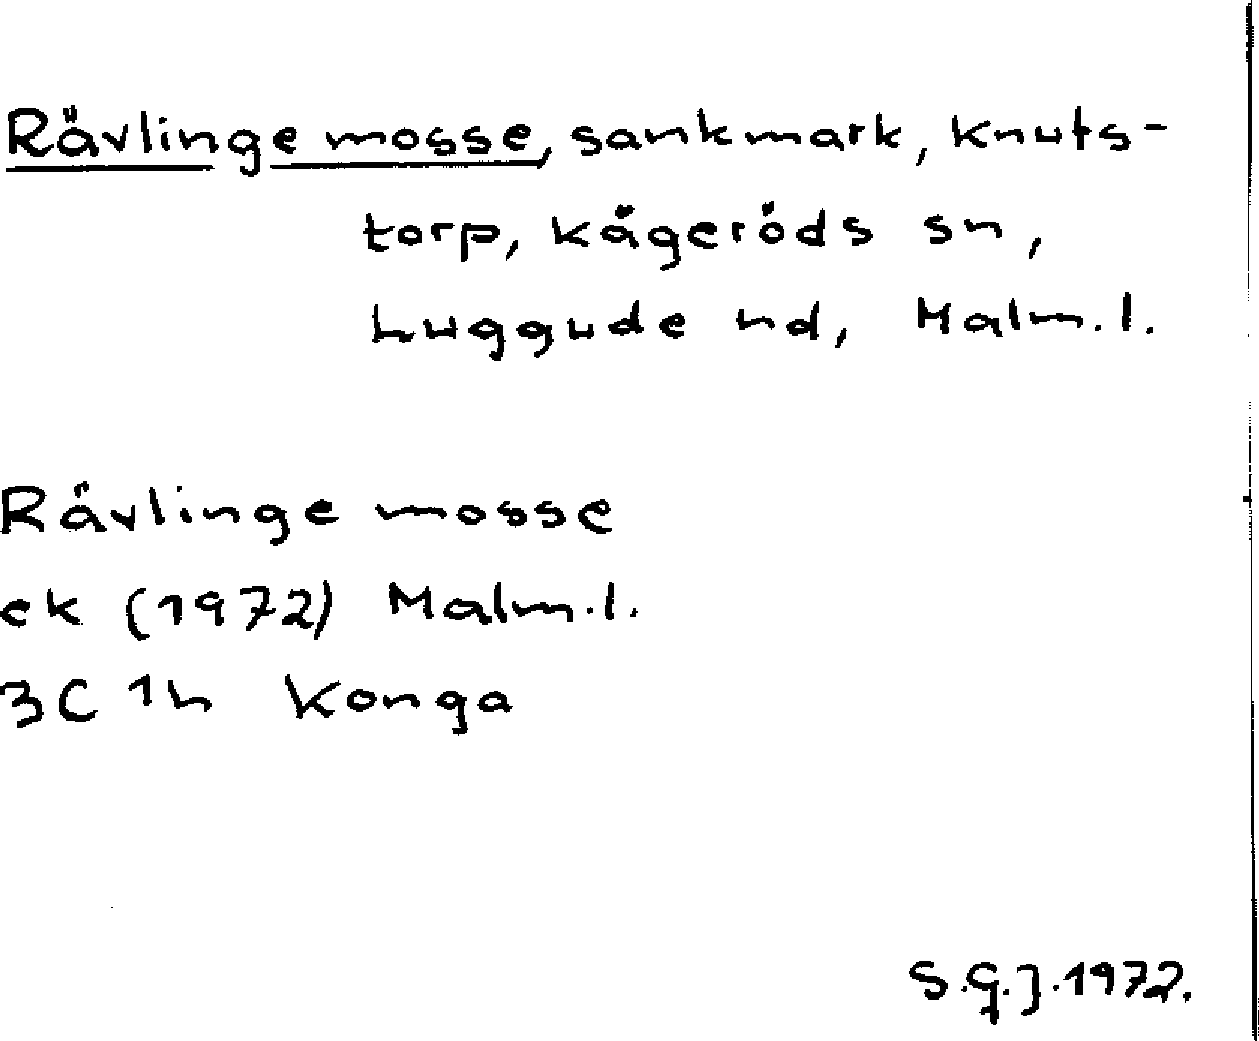 Rävlinge mosse, sankmark, Knuts-
torp, Kågeröds sn,
Luggude hd, Malm.l.
Rävlinge mosse
ek (1972) Malm.l.
3C 1h Konga
S.G.J. 1972.